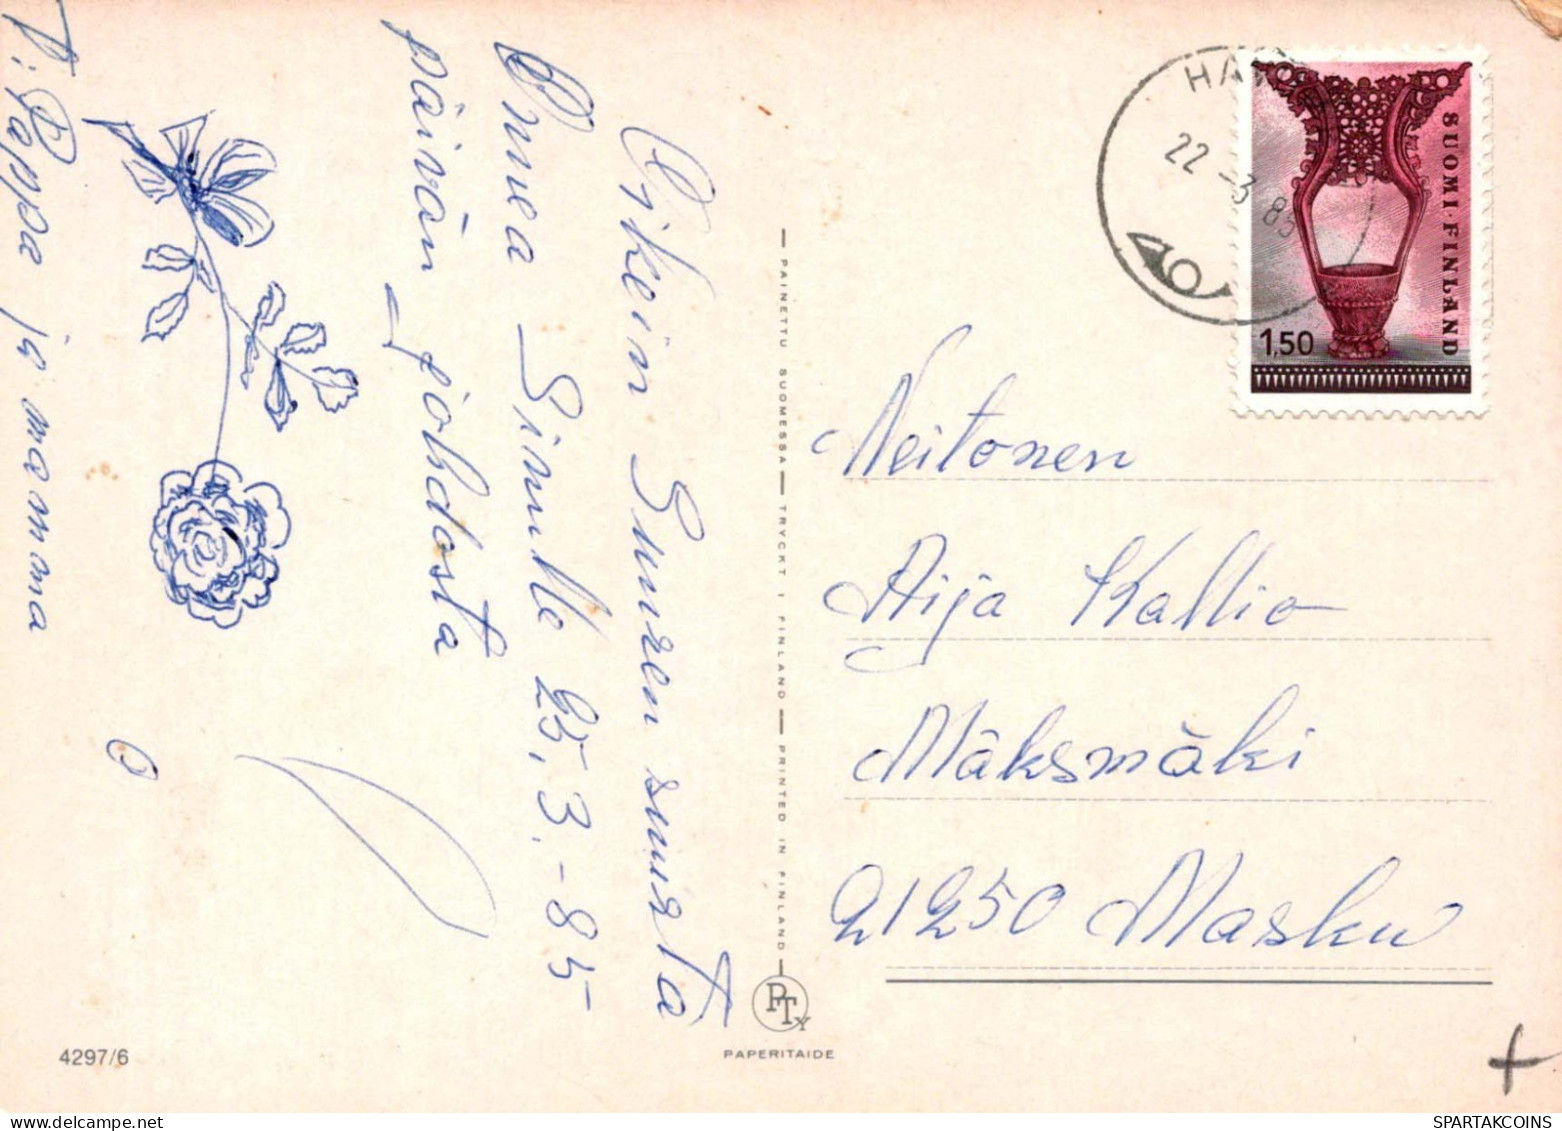 Oikein Suuren suurta
Onnea Sinulle 25.3.-85
päivän johdosta
T: Pappa ja mamma
PAINETTU SUOMESSA — TRYCKT I FINLAND — PRINTED IN FINLAND
PTY
PAPERITAIDE
4297/6
HA
22 -3 85
SUOMI·FINLAND
1,50
Neitonen
Aija Kallio
Mäksmäki
21250 Masku
SPARTAKCOINS